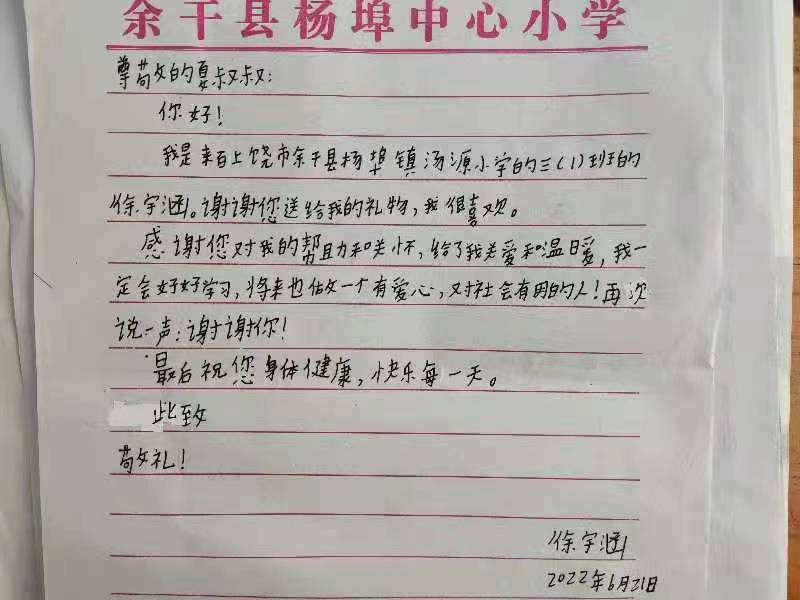 余干县杨埠中心小学
尊敬的夏叔叔:
你好!
我是来自上饶市余干县杨埠镇汤源小学的三(1)班的
徐宇涵。谢谢您送给我的礼物,我很喜欢。
感谢您对我的帮助和关怀,给了我关爱和温暖,我一
定会好好学习,将来也做一个有爱心,对社会有用的人!再次
说一声:谢谢你!
最后祝您身体健康,快乐每一天。
此致
敬礼!
徐宇涵
2022年6月21日